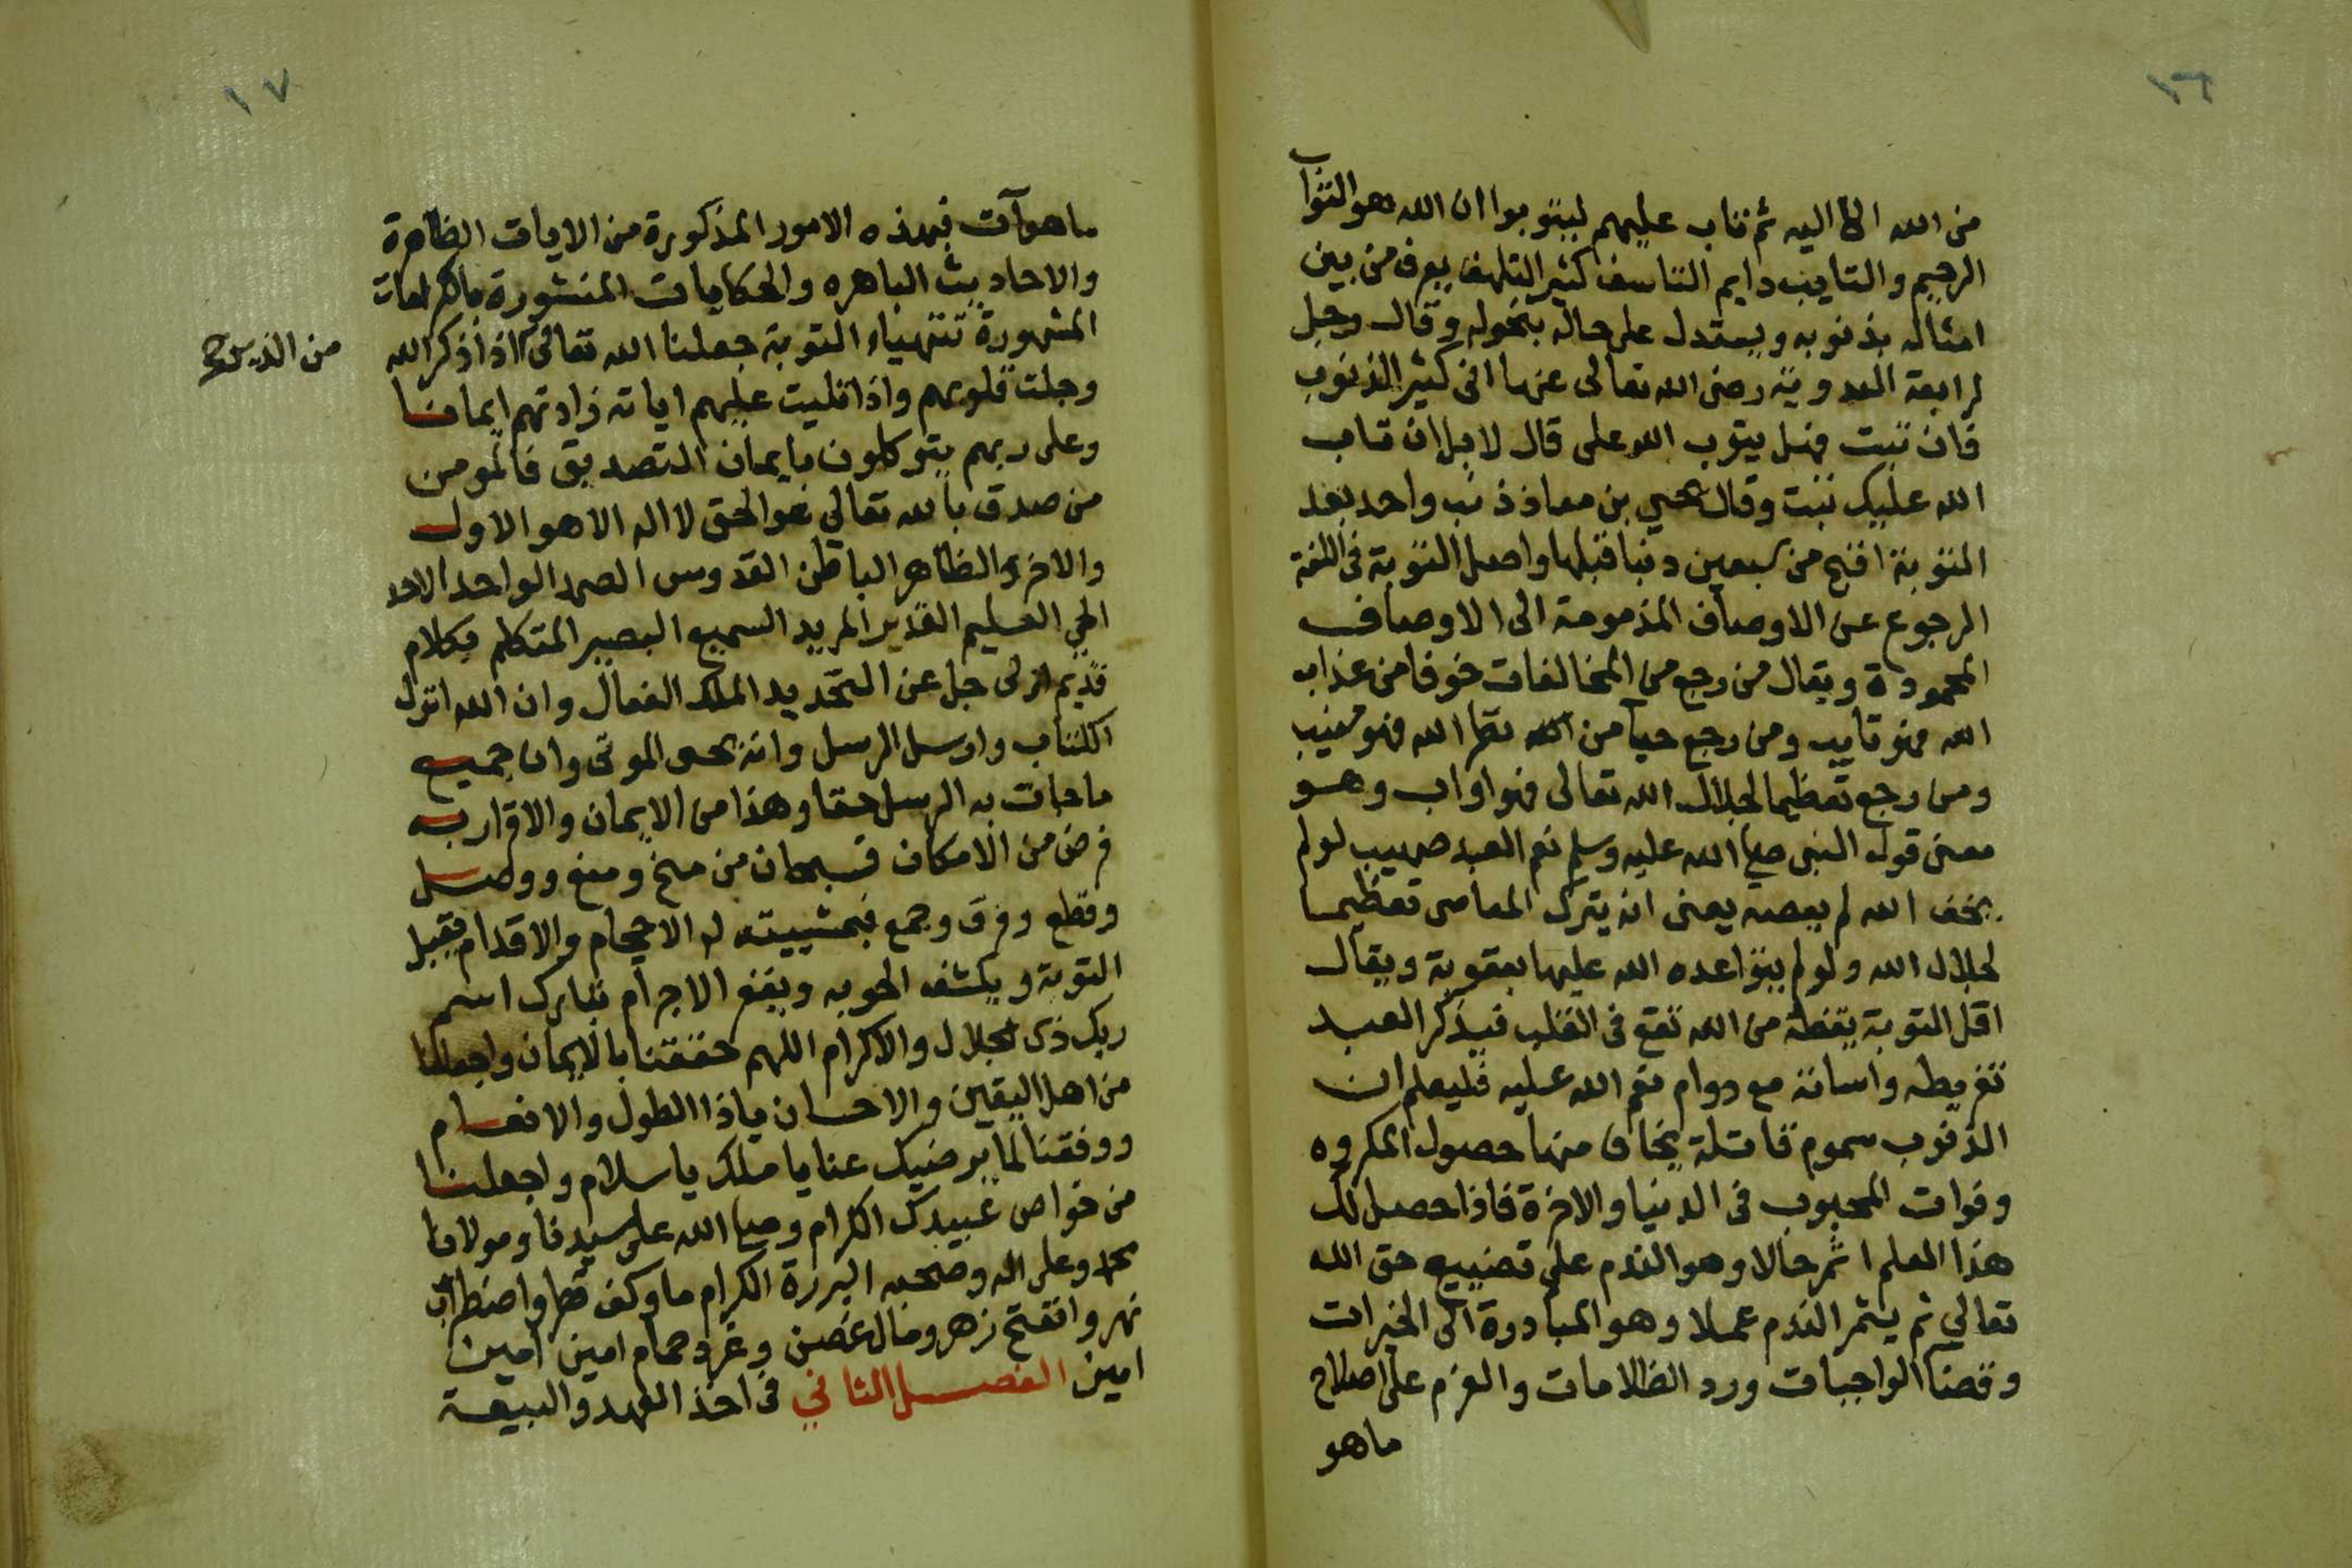 ١٦
من الله الا اليه ثم تاب عليهم ليتوبوا ان الله هو التواب
الرحيم والتايب دايم التاسف كثير التلهف يعرف من بين
امثاله بذنوبه ويستدل على حاله بنحوله وقال رجل
لرابعة العدوية رضى الله تعالى عنها انى كثير الذنوب
فان تبت فهل يتوب الله على قال لا بل ان تاب
الله عليك تبت وقال يحيي بن معاذ ذنب واحد بعد
التوبة اقبح من سبعين ذنبا قبلها واصل التوبة فى اللغة
الرجوع عن الاوصاف المذمومة الى الاوصاف
المحمودة ويقال من رجع من المخالفات خوفا من عذاب
الله فهو تايب ومن رجع حيآ من نظر الله فهو منيب
ومن رجع تعظيما لجلال الله تعالى فهو اواب وهو
معنى قول النبى صلى الله عليه وسلم نعم العبد صهيب لو لم
يخف الله لم يعصه يعنى انه يترك المعاصى تعظيما
لجلال الله ولو لم يتواعده الله عليها بعقوبة ويقال
اقل التوبة يقظة من الله تقع فى القلب فيذكر العبد
تفريطه واساته مع دوام نعم الله عليه فليعلم ان
الذنوب سموم قاتلة يخاف منها حصول المكروه
وفوات المحبوب فى الدنيا والاخرة فاذا حصل لك
هذا العلم اثمر حالا وهو الندم على تضييع حق الله
تعالي ثم يثمر الندم عملا وهو المبادرة الى الخيرات
وقضا الواجبات ورد الظلامات والعزم على اصلاح
ماهو
١٧
ما هو آت فبهذه الامور المذكورة من الايات الظاهرة
والاحاديث الباهره والحكايات المنشورة بالكرامات
المشهورة تتهياء التوبة جعلنا الله تعالى اذا ذكر الله
من الذين صح
وجلت قلوبهم واذا تليت عليهم اياته زادتهم ايمانا
وعلى ربهم يتوكلون بايمان التصديق فالمومن
من صدق بالله تعالي هو الحق لا اله الا هو الاول
والاخر والظاهر الباطن القدوس الصمد الواحد الاحد
الحي العليم القدير المريد السميع البصير المتكلم بكلام
قديم ازلى جل عن التحديد الملك الفعال وان الله انزل
الكتاب وارسل الرسل وانه يحى الموتى وان جميع
ماجات به الرسل حقا وهذا من الايمان والاقرار به
فرض من الامكان فسبحان من منح ومنع ووصل
وقطع وفرق وجمع فبمشييته له الاحجام والاقدام يقبل
التوبة ويكشف الحوبه ويغفر الاجرام تبارك اسم
ربك ذى الجلال والاكرام اللهم حققنا بالايمان واجعلنا
من اهل اليقين والاحسان ياذا الطول والانعام
ووفقنا لما يرضيك عنا يا ملك يا سلام واجعلنا
من خواص عبيدك الكرام وصلى الله على سيدنا ومولانا
محمد وعلى اله وصحبه البررة الكرام ما وكف قطر واضطرب
نهر وافتتح زهر ومال غصن وغرد حمام امين امين
امين الفصل الثاني فى اخذ العهد والبيعة